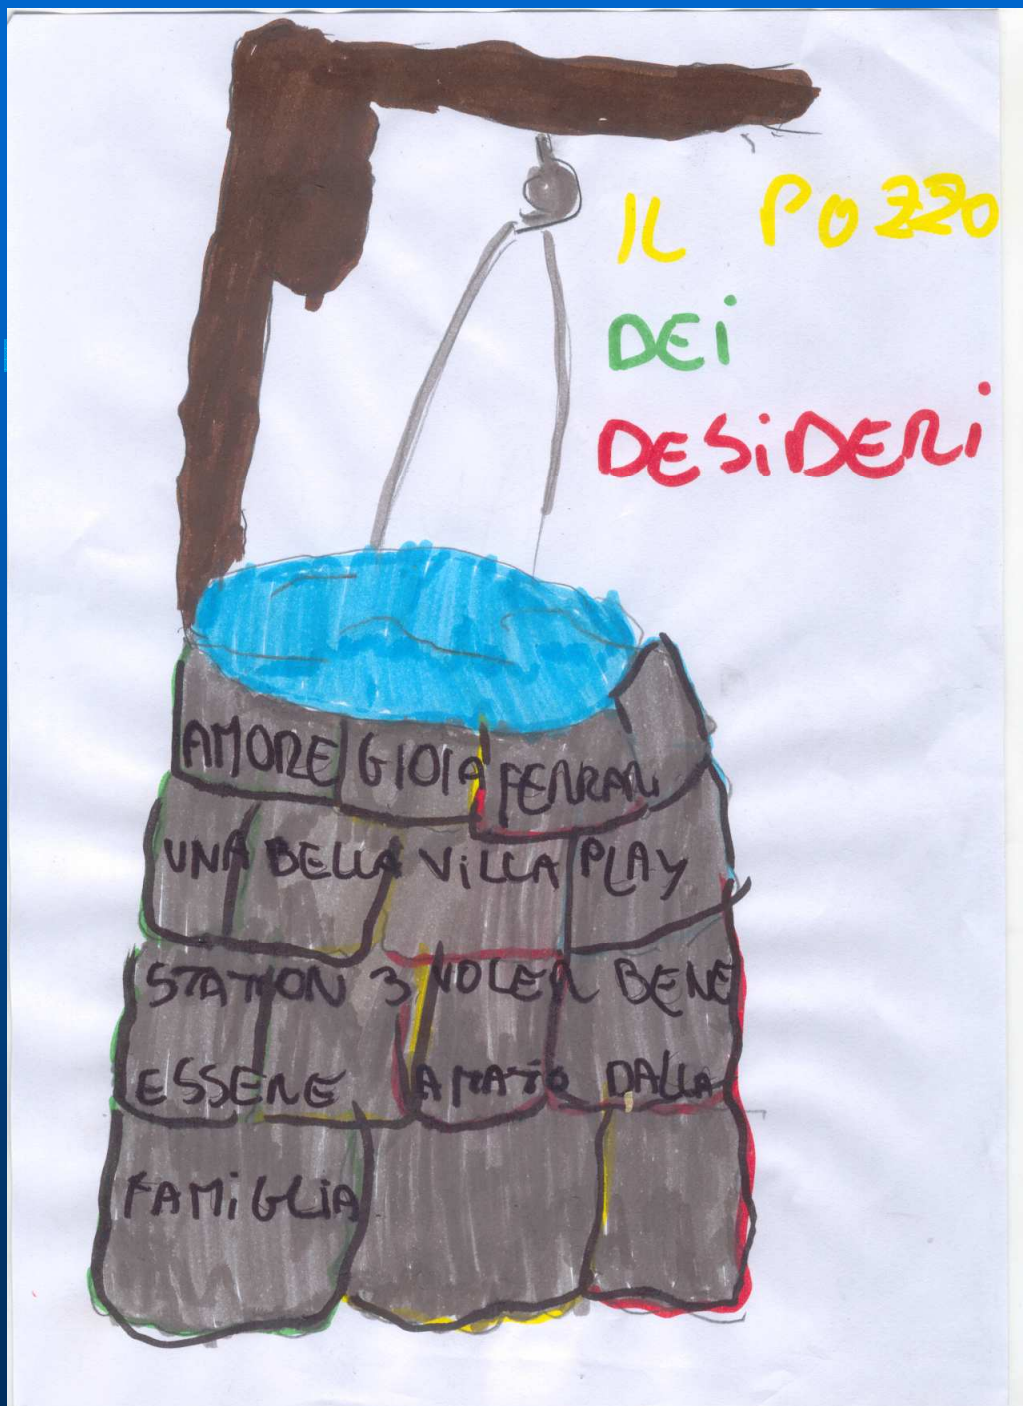 IL POZZO
DEI
DESiDERi
AMORE GIOIA FERRARI
UNA BELLA ViLLA PLAY
STATION 3 VOLER BENE
ESSERE AMATO DALLA
FAMiGLiA